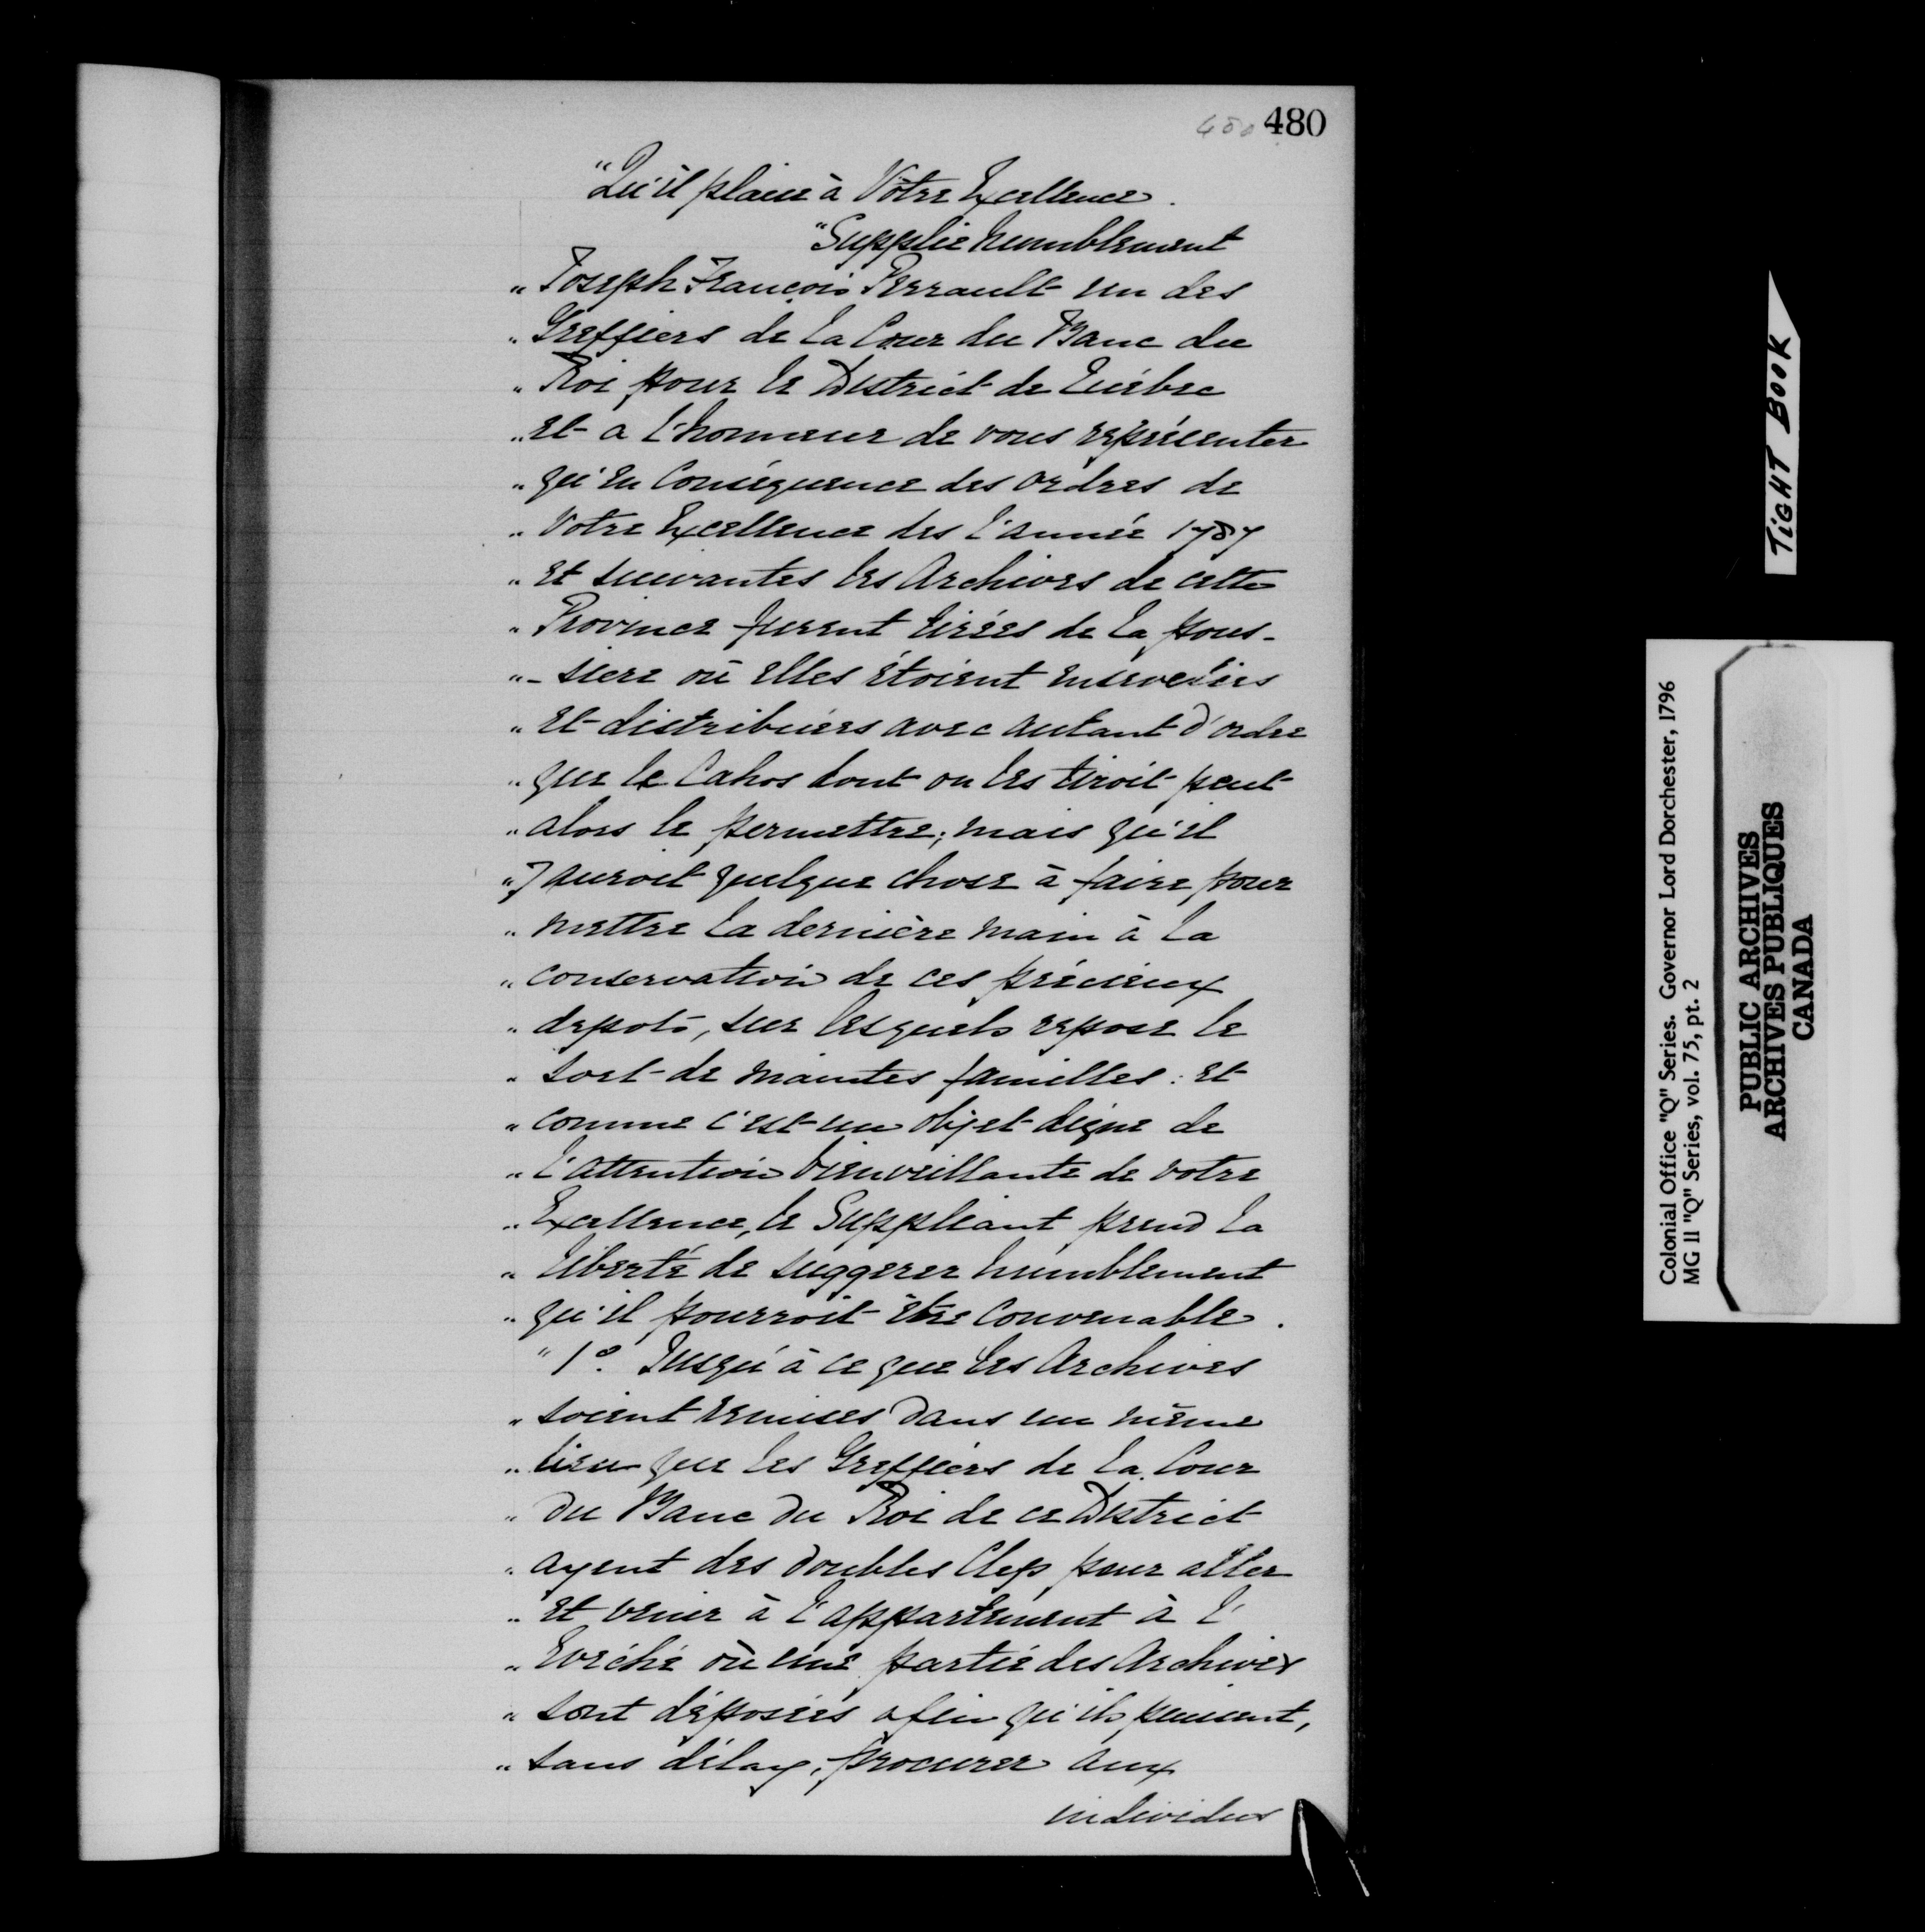 480
"Qu'il plaise à Votre Excellence.
"Supplie humblement
" Joseph François Perrault un des
" Greffiers de la Cour du Banc du
" Roi pour le District de Québec
" Et a l'honneur de vous représenter
" qu'en Conséquence des ordres de
" Votre Excellence des l'année 1787
" et suivantes les Archives de cette
" Province furent tirées de la pous-
" -siere où elles étoient ensevelies
" et distribuées avec autant d'ordre
" que le Cahos dont on les tiroit peut
" alors le permettre; mais qu'il
" y auroit quelque chose à faire pour
" mettre la dernière main à la
" conservation de ces précieux
" depots, sur lesquels repose le
" sort de maintes familles: et
" comme c'est un objet digne de
" l'attention bienveillante de votre
" Excellence, le Suppliant prend la
" liberté de suggerer humblement
" qu'il pourroit être Convenable.
" 1º. Jusqu'à ce que les Archives
" soient remises dans un même
" lieu que les Greffiers de la Cour
" du Banc du Roi de ce District
" ayent des doubles Clefs pour aller
" et venir à l'appartement à l'
" Evéché où une partie des Archives
" sont déposées afin qu'ils puissent,
" sans délay, procurer aux
individus
TIGHT BOOK
Colonial Office "Q" Series. Governor Lord Dorchester, 1796
MG 11 "Q" Series, vol. 75, pt. 2
PUBLIC ARCHIVES
ARCHIVES PUBLIQUES
CANADA